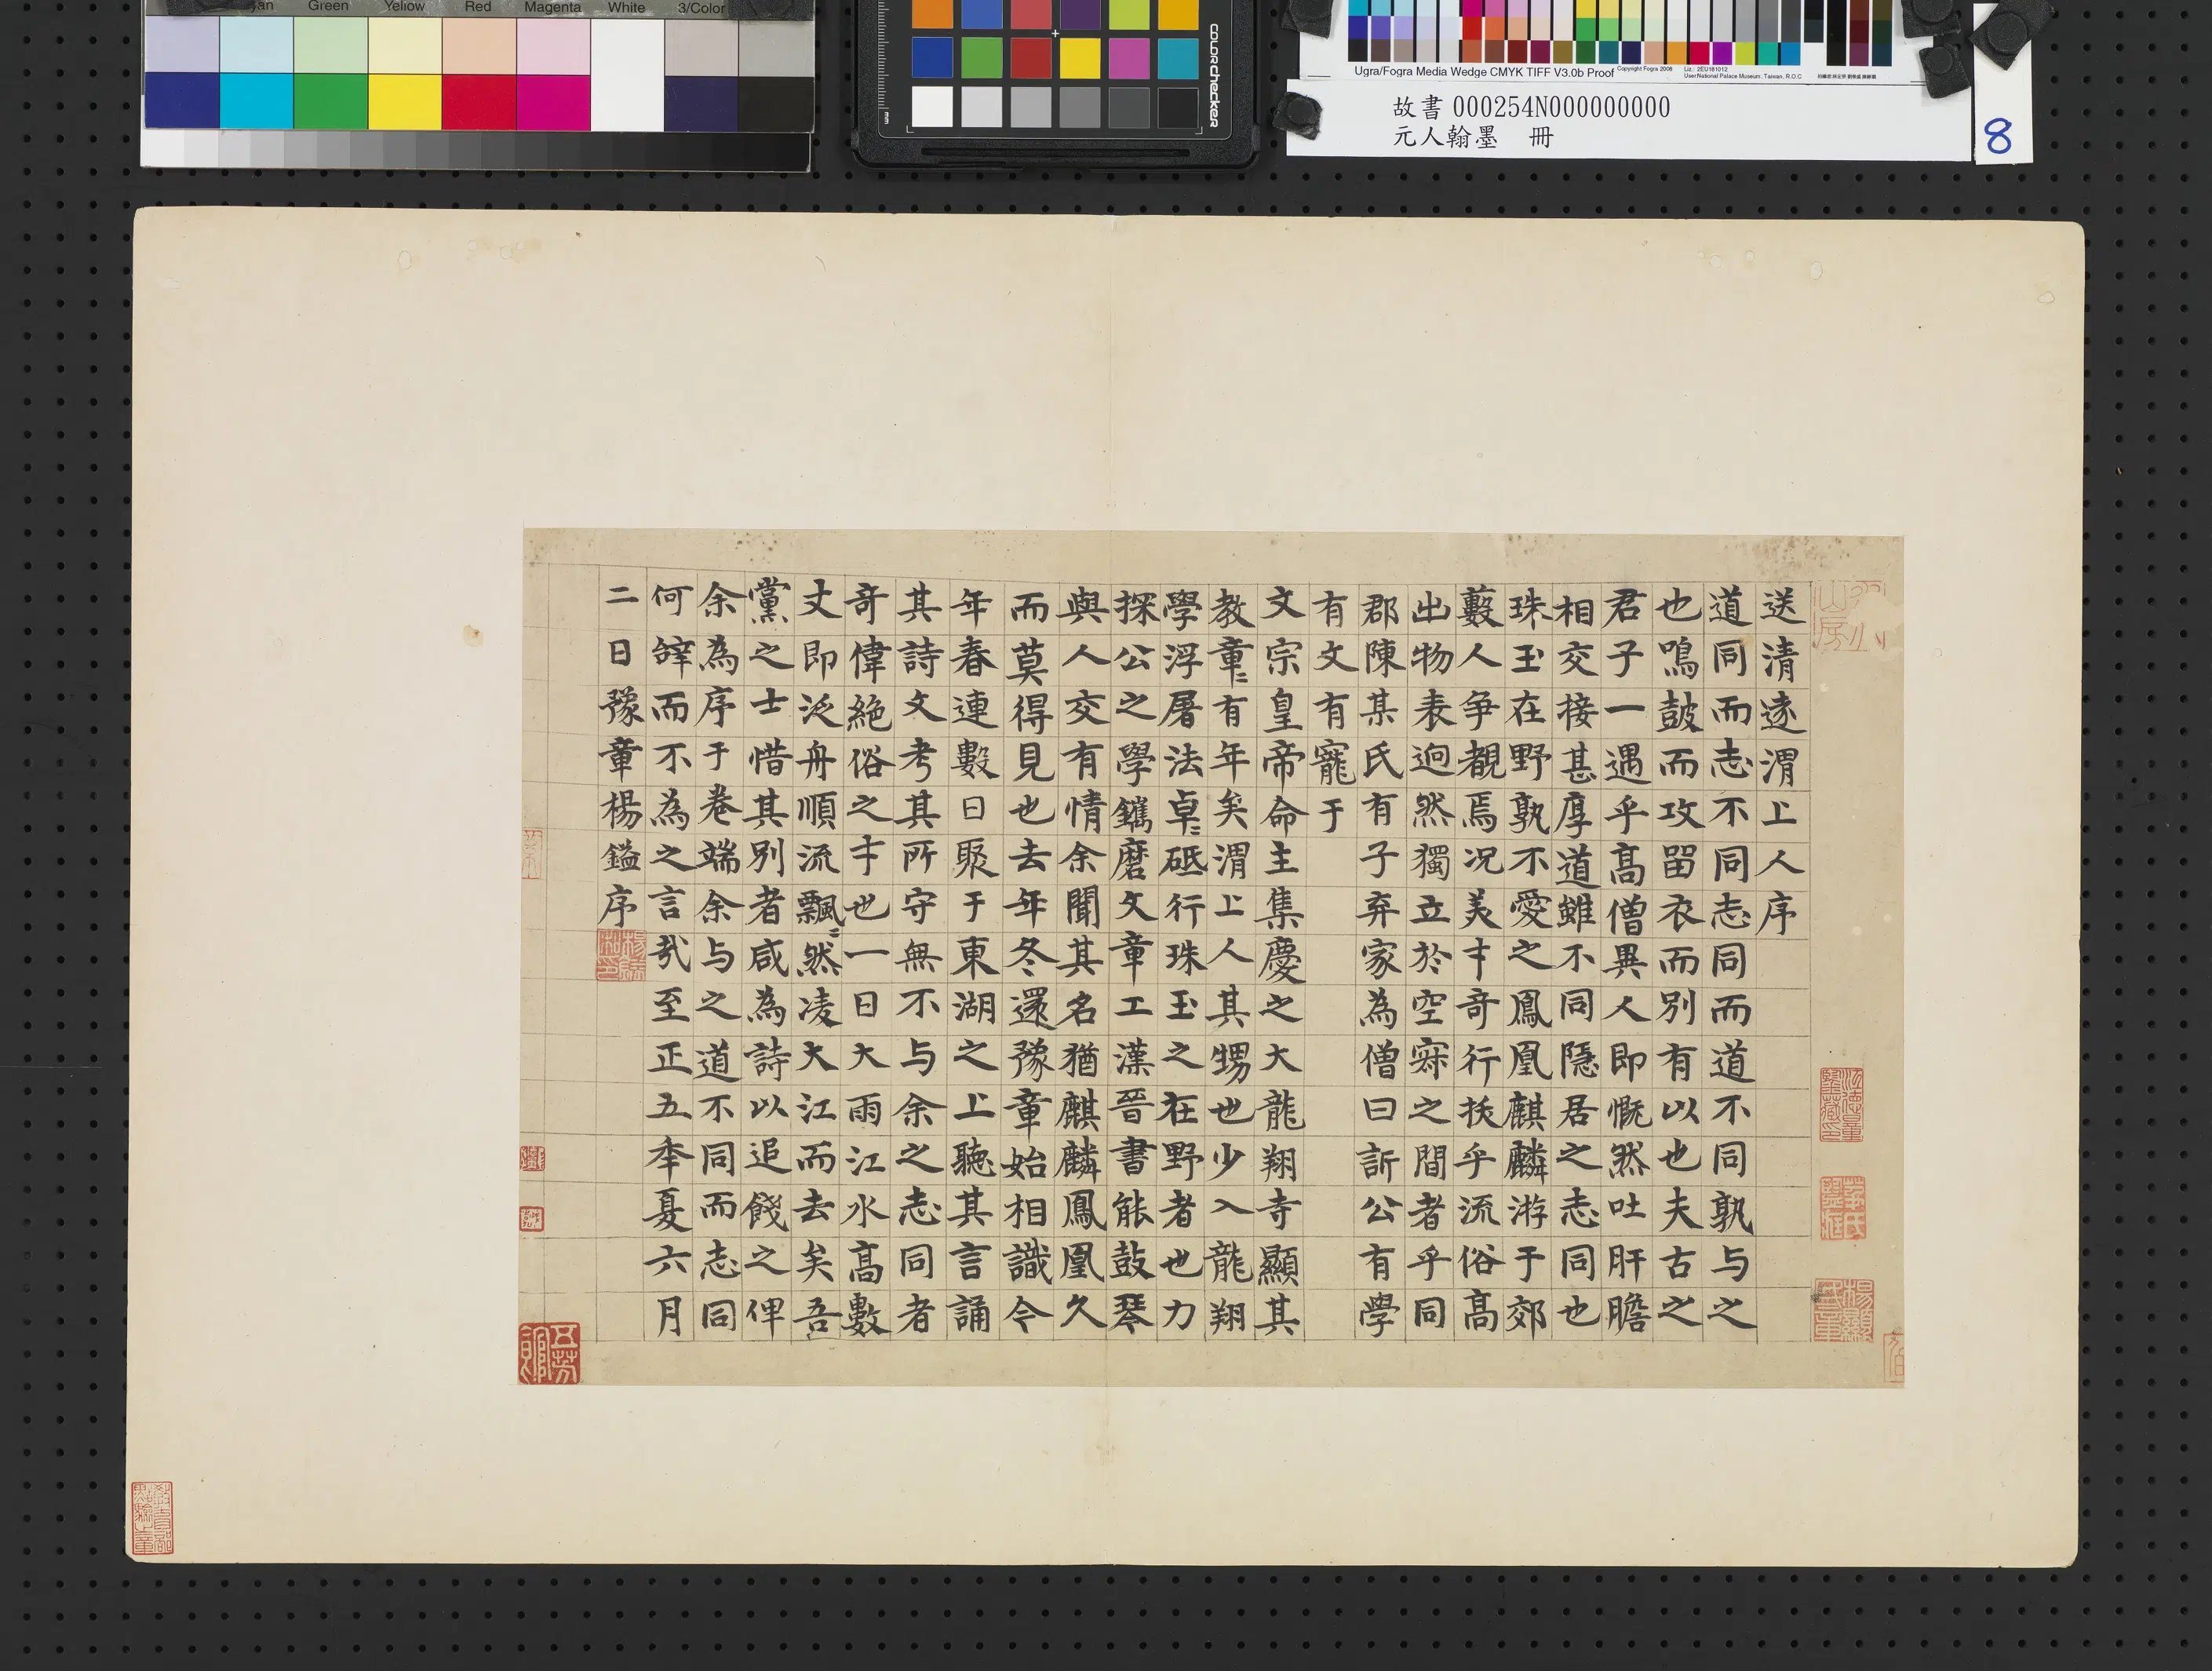 Cyan Green Yellow Red Magenta White 3/Color
colorchecker
mm
Ugra/Fogra Media Wedge CMYK TIFF V3.0b Proof
Copyright Fogra 2008
Liz.: 2EU181012
User:National Palace Museum, Taiwan, R.O.C
故書 000254N000000000
元人翰墨 冊
8
送清遠渭上人序
道同而志不同志同而道不同孰与之
也鳴鼓而攻留衣而別有以也夫古之
君子一遇乎高僧異人即慨然吐肝膽
相交接甚厚道雖不同隱居之志同也
珠玉在野孰不愛之鳳凰麒麟游于郊
藪人爭覩焉況美才奇行拔乎流俗高
出物表迥然獨立於空寂之間者乎同
郡陳某氏有子弃家為僧曰訢公有學
有文有寵于
文宗皇帝命主集慶之大龍翔寺顯其
教童〻有年矣渭上人其甥也少入龍翔
學浮屠法卓〻砥行珠玉之在野者也力
探公之學鑴磨文章工漢晉書能鼓琴
與人交有情余聞其名猶麒麟鳳凰久
而莫得見也去年冬還豫章始相識今
年春連數日聚于東湖之上聽其言誦
其詩文考其所守無不与余之志同者
奇偉絕俗之才也一日大雨江水高數
丈即泛舟順流飄〻然凌大江而去矣吾
黨之士惜其別者咸為詩以追餞之俾
余為序于卷端余与之道不同而志同
何辝而不為之言哉至正五年夏六月
二日豫章楊鎰序